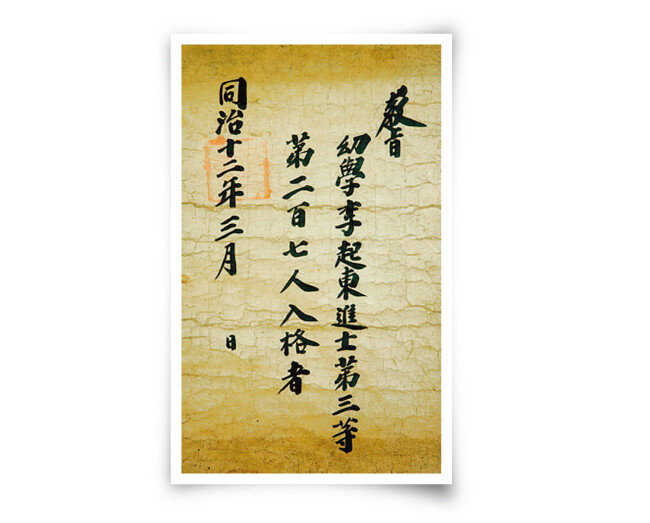 敎旨
幼學李起東進士第三等
第二百七人入格者
同治十二年三月 日